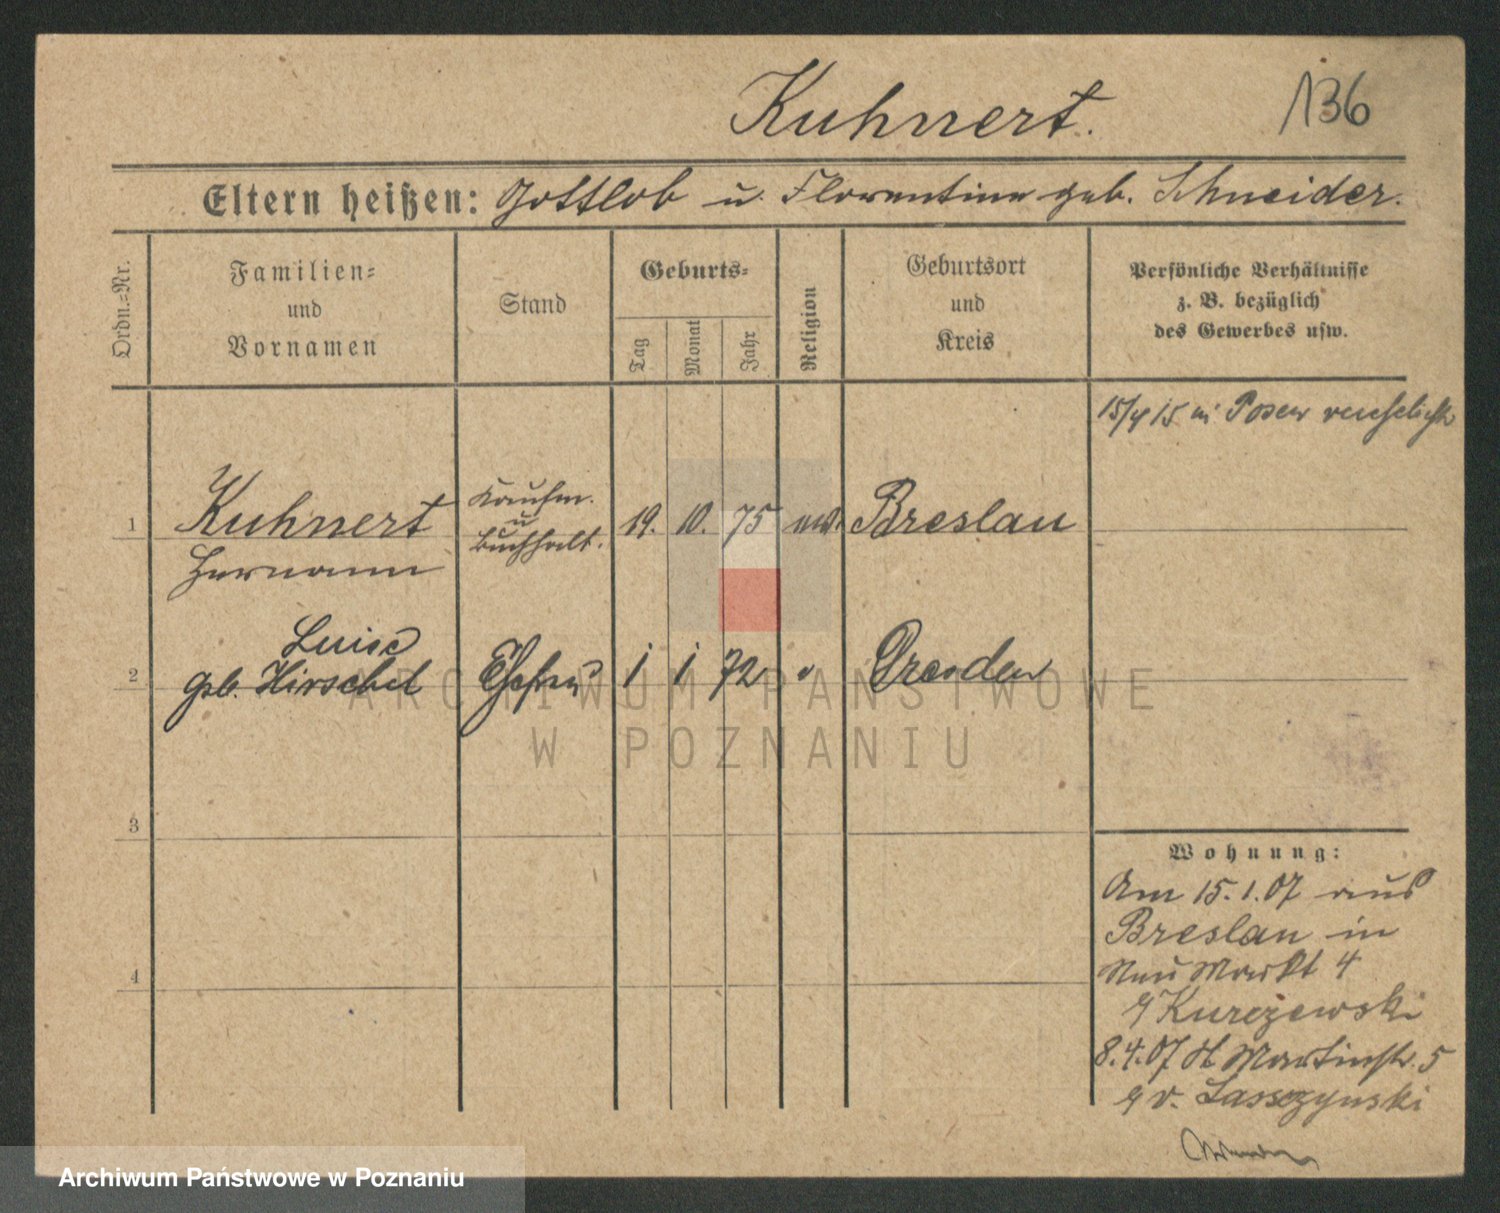 Kuhnert.
136
Eltern heißen: Gottlob u. Florentine geb. Schneider.
Ordn.=Nr.
Familien=
und
Vornamen
Stand
Geburts=
Tag
Monat
Jahr
Religion
Geburtsort
und
Kreis
Persönliche Verhältnisse
z. B. bezüglich
des Gewerbes usw.
15/4 15 in Posen verehelicht
1
Kuhnert
Hermann
Kaufm.
u
Buchhalt.
19.
10.
75
ev.
Breslau
2
Luise
geb. Hirschel
Ehefrau
1
1
72
"
Dresden
3
4
Wohnung:
Am 15.1.07 aus
Breslau in
Neu Markt 4
Kurczewski
8.4.07 St Martinstr. 5
v. Lasszynski
ARCHIWUM PAŃSTWOWE
W POZNANIU
Archiwum Państwowe w Poznaniu